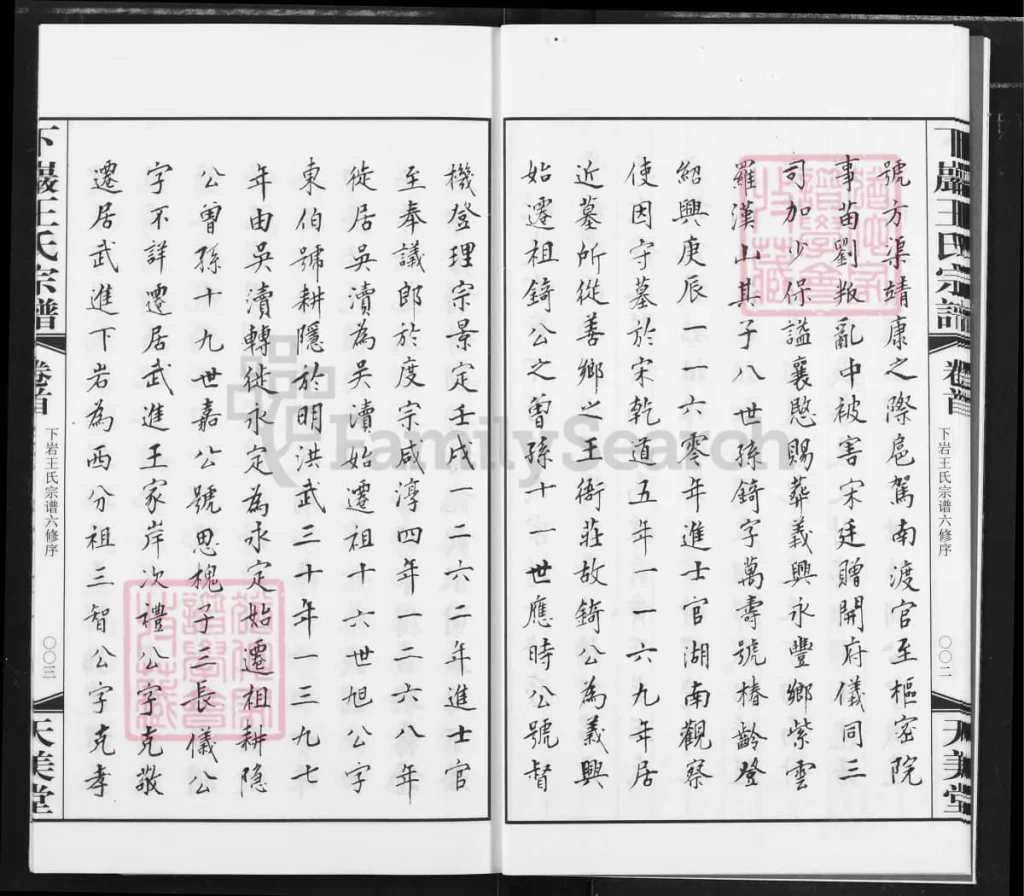 下巖王氏宗譜
卷首
下岩王氏宗谱六修序
〇〇二
天美堂
號方渠靖康之際扈駕南渡官至樞密院
事苗劉叛亂中被害宋廷贈開府儀同三
司加少保謚襄愍賜葬義興永豐鄉紫雲
羅漢山其子八世孫錡字萬壽號椿齡登
紹興庚辰一一六零年進士官湖南觀察
使因守墓於宋乾道五年一一六九年居
近墓所從善鄉之王衙莊故錡公為義興
始遷祖錡公之曾孫十一世應時公號督
機登理宗景定壬戌一二六二年進士官
至奉議郎於度宗咸淳四年一二六八年
徙居吳瀆為吳瀆始遷祖十六世旭公字
東伯號耕隱於明洪武三十年一三九七
年由吳瀆轉徙永定為永定始遷祖耕隐
公曾孫十九世嘉公號思槐子三長儀公
字不詳遷居武進王家岸次禮公字克敬
遷居武進下岩為西分祖三智公字克孝
下巖王氏宗譜
卷首
下岩王氏宗谱六修序
〇〇三
天美堂
FamilySearch